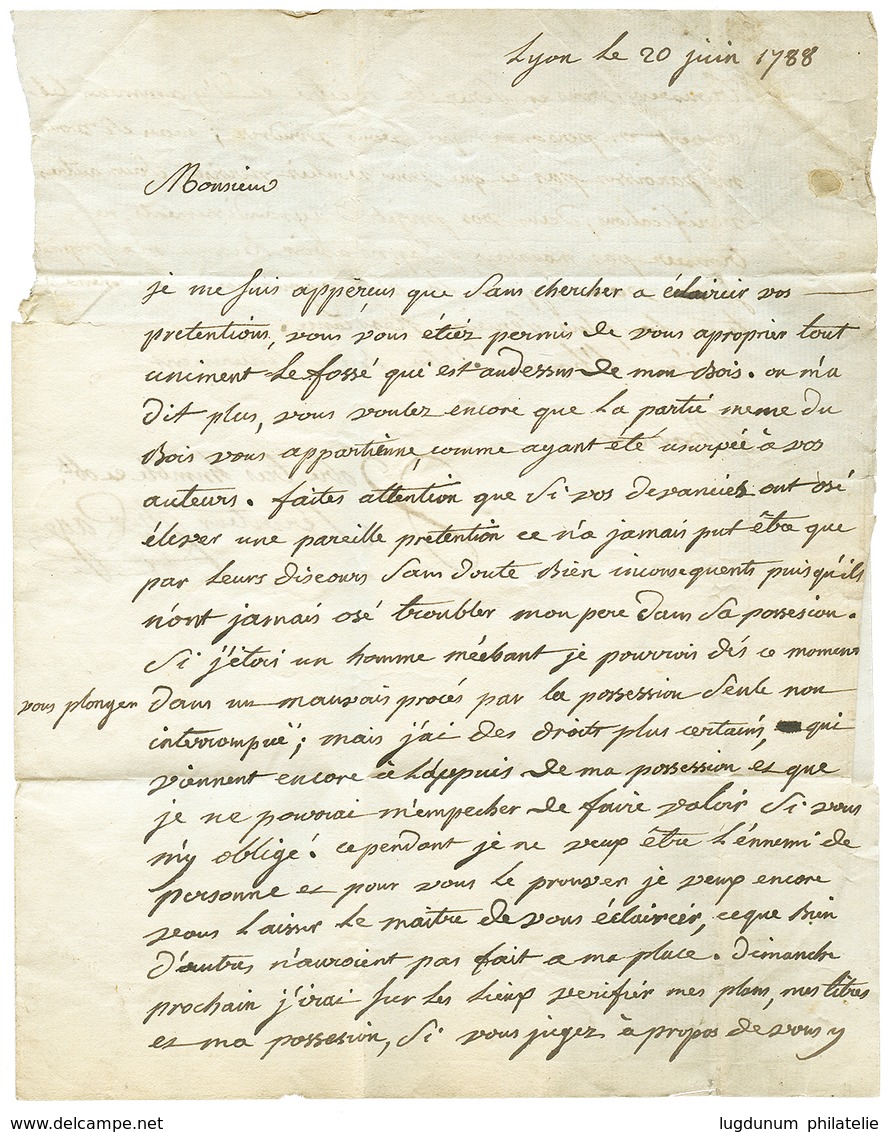 Lyon le 20 juin 1788
Monsieur
je me suis apperçus que sans chercher a éclaircir vos
pretentions, vous vous étiéz permis de vous aproprier tout
uniment le fossé qui est audessus de mon Bois. on m'a
dit plus, vous voulez encore que la partié meme du
Bois vous appartiénne, comme ayant été usurpée à vos
auteurs. faites attention que si vos devanciers ont osé
élever une pareille pretention ce n'a jamais put être que
par leurs discours sans doute Bien inconsequents puisqu'ils
n'ont jamais osé troubler mon pere dans sa possesion.
Si j'étois un homme méchant je pourrois dés ce moment
vous plonger dans un mauvais procés par la possession seule non
interrompuë; mais j'ai des droits plus certains, qui
viennent encore à l'appuis de ma possession et que
je ne pourai m'empecher de faire valoir si vous
m'y obligé. cependant je ne veux être l'énnemi de
personne et pour vous le prouver je veux encore
vous laisser le maitre de vous éclaircér, ce que Bien
d'autres n'auroient pas fait a ma place. Dimanche
prochain j'irai sur les lieux verifiér mes plans, mes titres
et ma possesion, si vous jugez à propos de vous y
www.delcampe.net
lugdunum philatelie